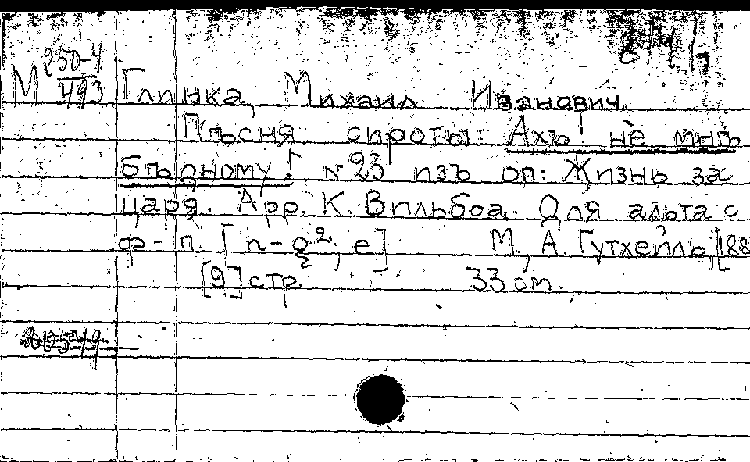 М 250-4
493
Глинка, Михаил Иванович.
Пѣсня сироты: Ахъ! не мнѣ
бѣдному! N 23 изъ оп: Жизнь за
царя. Арр. К. Вильбоа. Для альта с
ф-п. [n-g², e] М., А. Гутхейль, [188
[9] стр. 33 см.